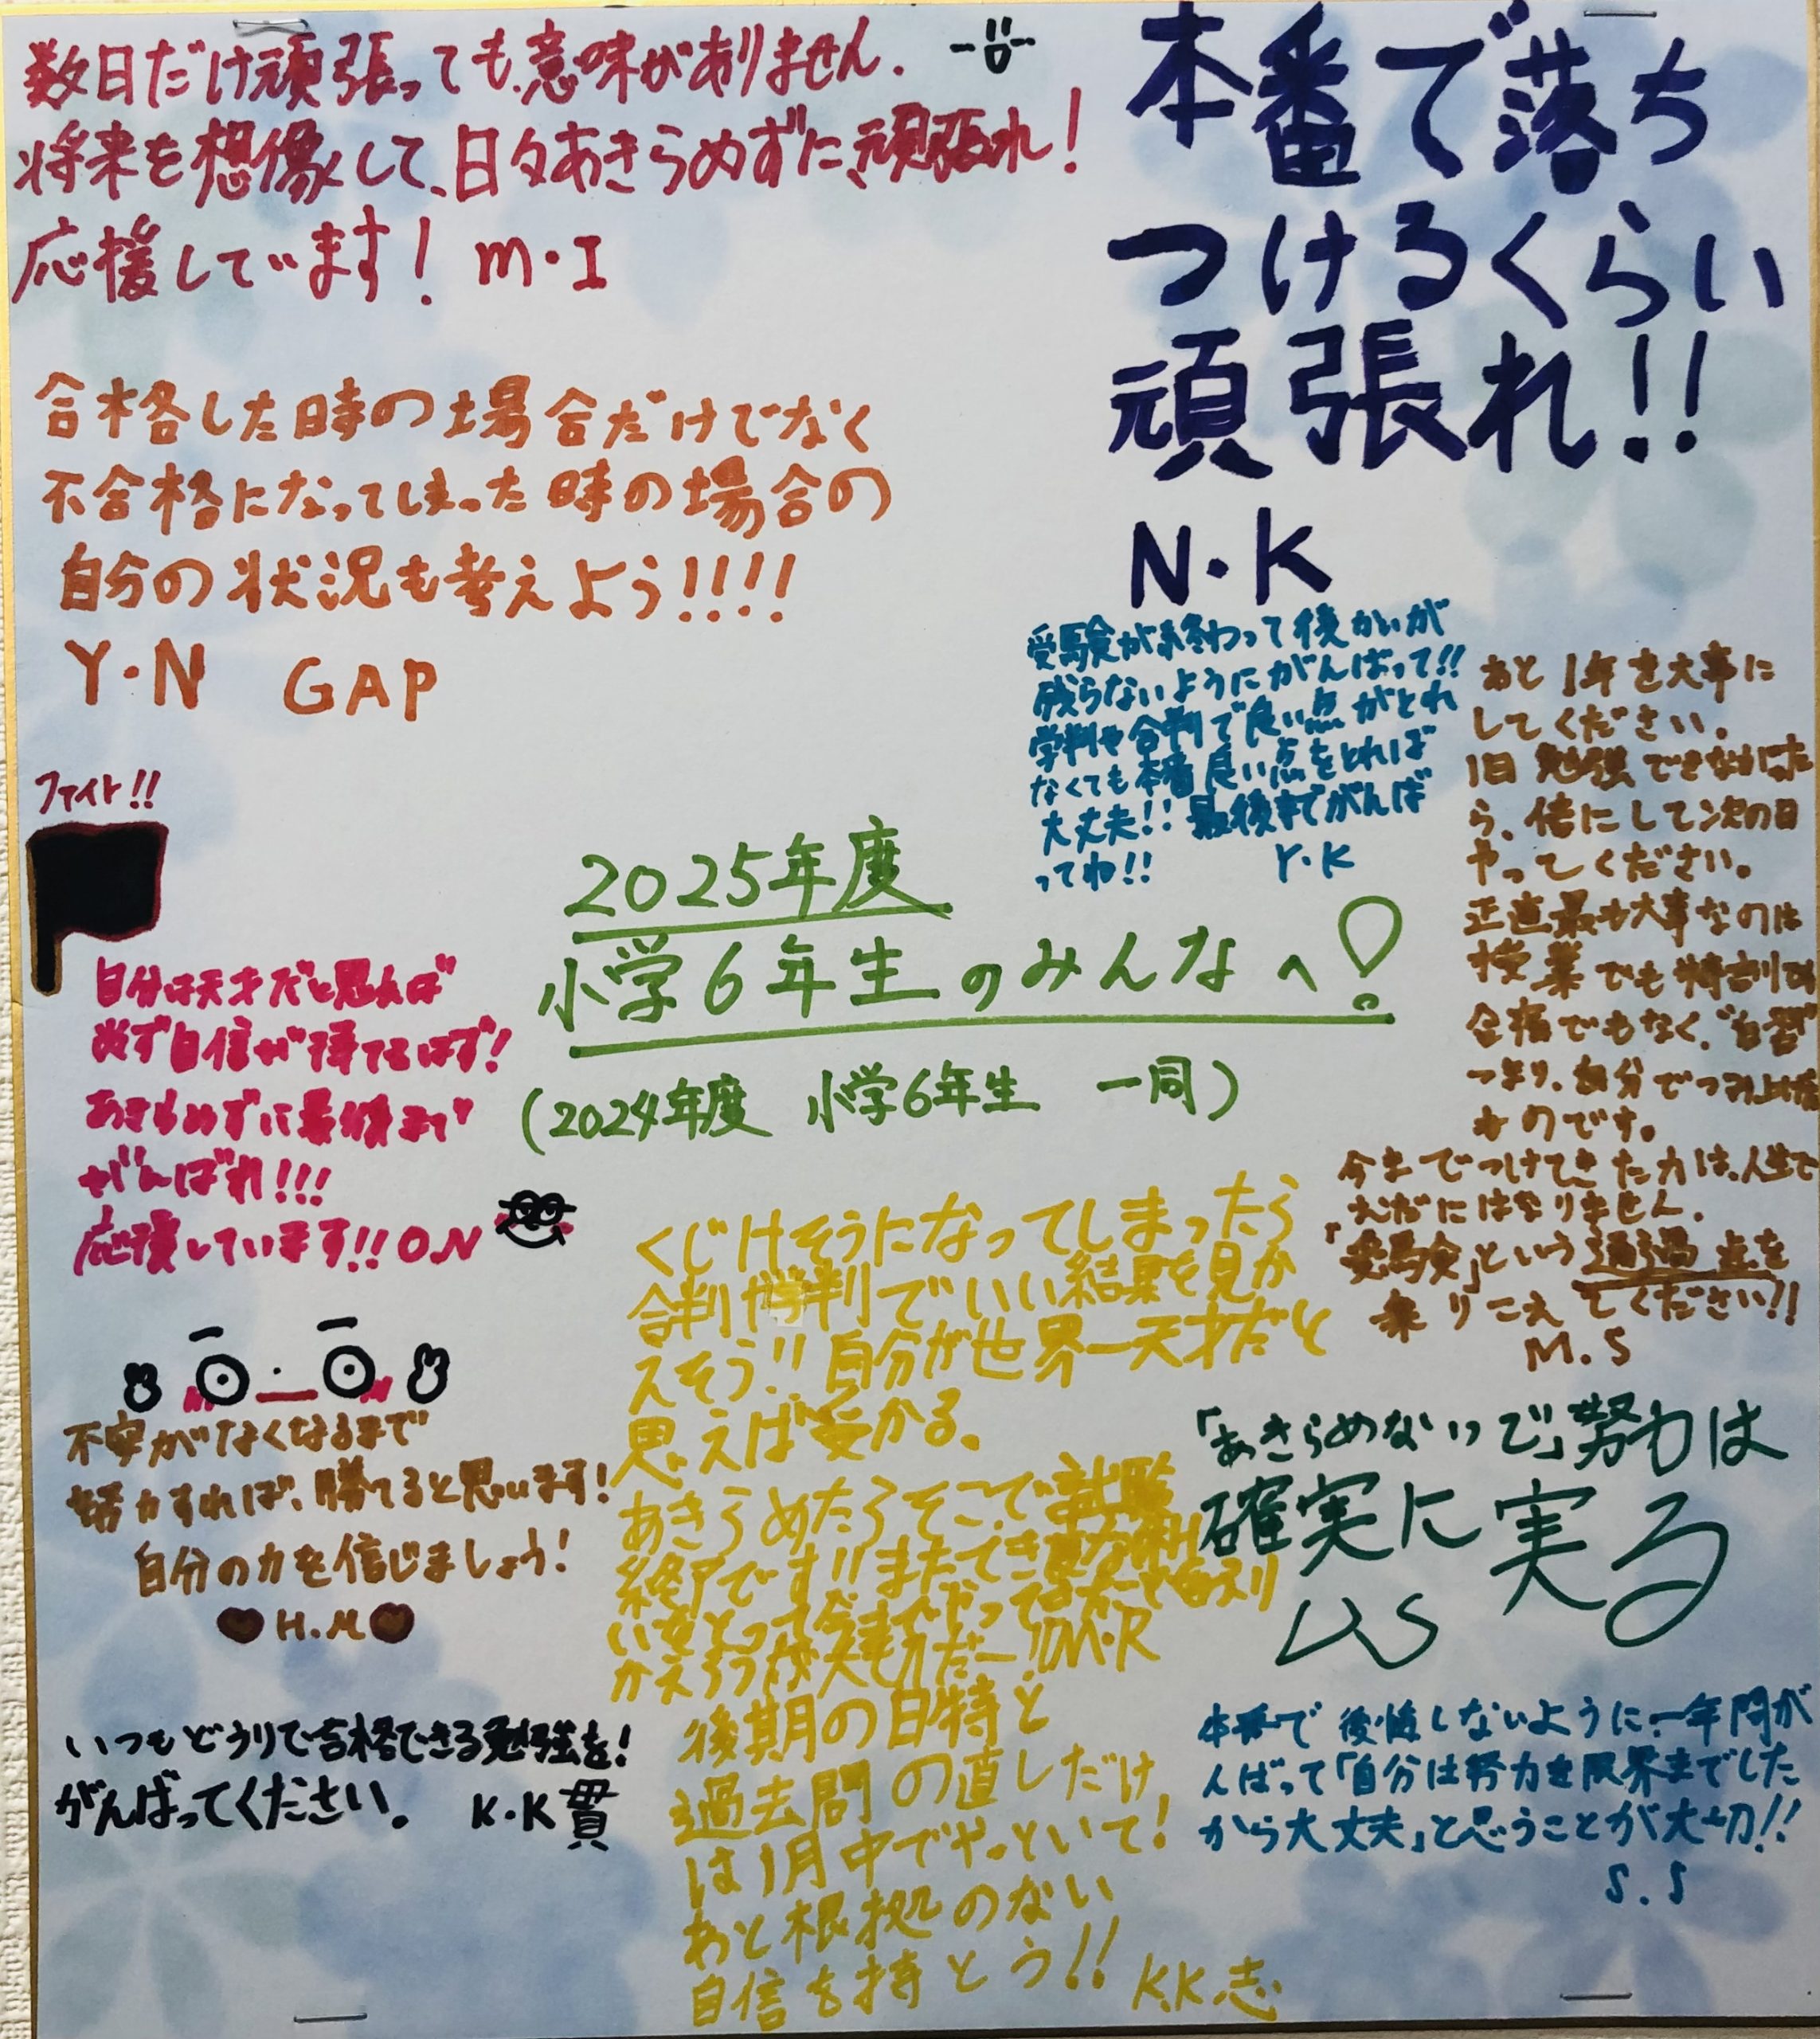 数日だけ頑張っても意味がありません.
将来を想像して、日々あきらめずに、頑張れ!
応援しています! M・I
本番で落ち
つけるくらい
頑張れ!!
N・K
合格した時の場合だけでなく
不合格になってしまった時の場合の
自分の状況も考えよう!!!!
Y・N GAP
受験が終わって後かいが
残らないようにがんばって!!
学判や合判で良い点がとれ
なくても本番良い点をとれば
大丈夫!! 最後までがんば
ってね!! Y・K
あと1年を大事に
してください。
1日勉強できなかった
ら、倍にして次の日
やってください。
正直最も大事なのは
授業でも特訓でも
合宿でもなく、"自習"
つまり、自分でつみ上げた
ものです。
今までつけてきた力は、人生で
むだにはなりません.
「受験」という通過点を
乗りこえてください!!
M.S
ファイト!!
2025年度
小学6年生のみんなへ!
(2024年度 小学6年生 一同)
自分は天才だと思えば
必ず自信が持てるはず!
あきらめずに最後まで
がんばれ!!!
応援しています!! O.N
くじけそうになってしまったら
合判や学判でいい結果を見か
えそう!! 自分が世界一天才だと
思えば受かる、
あきらめたらそこで試験
終了です!!
M・R
不安がなくなるまで
努力すれば、勝てると思います!
自分の力を信じましょう!
H.M
「あきらめないっで」努力は
確実に実る
いつもどうりで合格できる勉強を!
がんばってください。 K・K貫
後期の日特と
過去問の直しだけ
は1月中でやっといて!
あと根拠のない
自信を持とう!! K.K.志
本番で後悔しないように一年間が
んばって「自分は努力を限界までした
から大丈夫」と思うことが大切!!
S.S